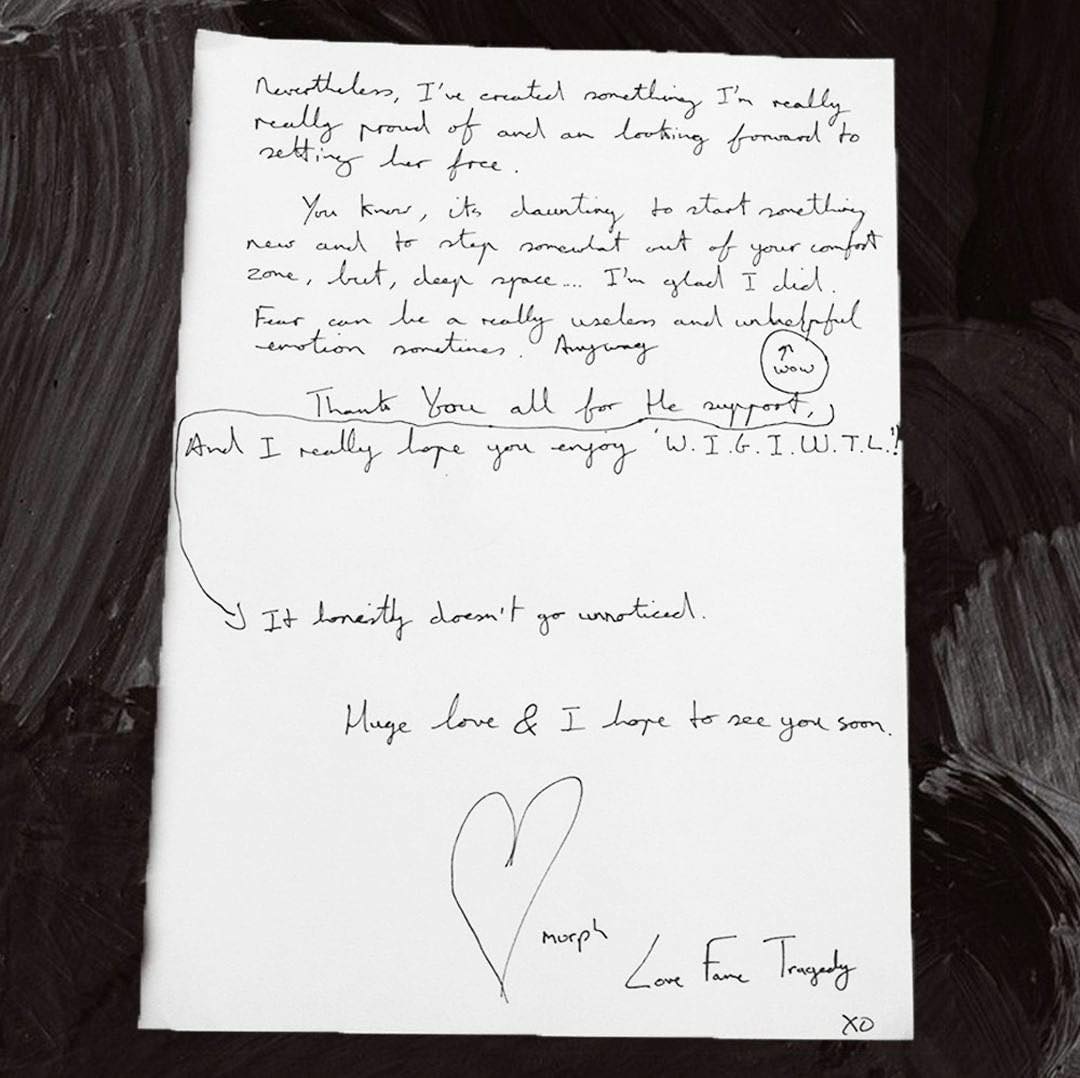 Nevertheless, I've created something I'm really
really proud of and am looking forward to
setting her free.
You know, its daunting to start something
new and to step somewhat out of your comfort
zone, but, deep space.... I'm glad I did.
Fear can be a really useless and unhelpful
emotion sometimes. Anyway
↑
wow
Thank You all for the support,
And I really hope you enjoy 'W.I.G.I.W.T.L.'!
It honestly doesn't go unnoticed.
Huge love & I hope to see you soon.
Murph
Love Fame Tragedy
XO